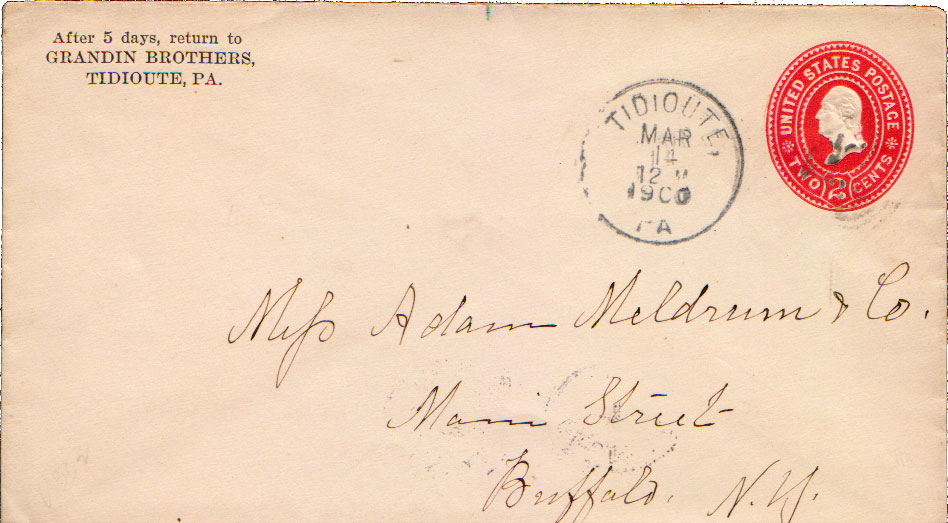 After 5 days, return to
GRANDIN BROTHERS,
TIDIOUTE, PA.
TIDIOUTE,
MAR
14
12 M
1900
PA
UNITED STATES POSTAGE
TWO 2 CENTS
Mess Adam Meldrum & Co.
Main Street
Buffalo. N.Y.